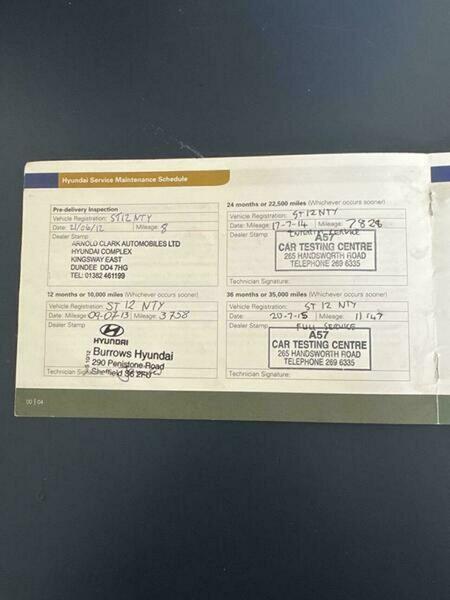 Hyundai Service Maintenance Schedule
Pre-delivery Inspection
Vehicle Registration: ST12 NTY
Date: 21/06/12 Mileage: 8
Dealer Stamp
ARNOLD CLARK AUTOMOBILES LTD
HYUNDAI COMPLEX
KINGSWAY EAST
DUNDEE DD4 7HG
TEL: 01382 461199
12 months or 10,000 miles (Whichever occurs sooner)
Vehicle Registration: ST 12 NTY
Date: Mileage: 09-07-13 Mileage: 3758
Dealer Stamp
HYUNDAI
Burrows Hyundai
290 Penistone Road
Sheffield S6 2FU
Technician Signature:
24 months or 22,500 miles (Whichever occurs sooner)
Vehicle Registration: ST12 NTY
Date: Mileage: 17-7-14 Mileage: 7828
Dealer Stamp SERVICE
A57
CAR TESTING CENTRE
265 HANDSWORTH ROAD
TELEPHONE 269 6335
Technician Signature:
36 months or 35,000 miles (Whichever occurs sooner)
Vehicle Registration: ST 12 NTY
Date: Mileage: 20-7-15 Mileage: 11147
Dealer Stamp FULL SERVICE
A57
CAR TESTING CENTRE
265 HANDSWORTH ROAD
TELEPHONE 269 6335
Technician Signature:
00 | 04